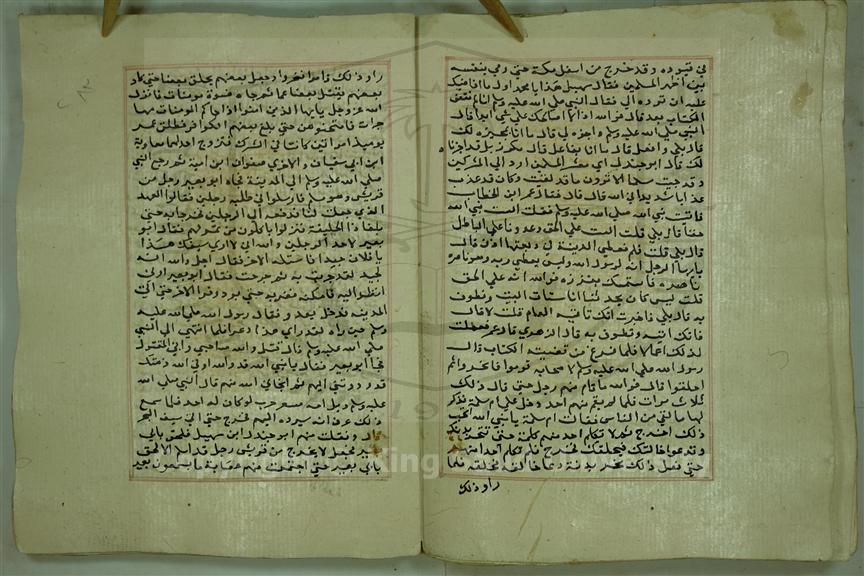 في قيوده وقد خرج من اسفل مكة حتى رمى بنفسه
بين اظهر المسلمين فقال سهيل هذا يا محمد اول ما اقاضيك
عليه ان ترده الي فقال النبي صلى الله عليه وسلم انا لم نقض
الكتاب بعد قال فوالله اذا لا اصالحك على شي ابدا قال
النبي صلى الله عليه وسلم فاجزه لي قال ما انا بمجيزه لك
قال بلى فافعل قال ما انا بفاعل قال مكرز بل قد اجزناه
لك قال ابو جندل اي معشر المسلمين ارد الى المشركين
وقد جيت مسلما الا ترون ما قد لقيت وكان قد عذب
عذابا شديدا في الله قال قال فقال عمر ابن الخطاب
فاتيت نبي الله صلى الله عليه وسلم فقلت الست نبي الله
حقا قال بلى قلت السنا على الحق وعدونا على الباطل
قال بلى قلت فلم نعطي الدنية في ديننا اذن قال
يا ايها الرجل انه لرسول الله وليس يعصي ربه وهو ناصره
فاستمسك بغرزه فوالله انه على الحق
قلت ليس كان يحدثنا انا سنات البيت ونطوف
به قال بلى فاخبرك انك تاتيه العام قلت لا قال
فانك اتيه وتطوف به قال الزهري قال عمر فعملت
لذلك اعمالا فلما فرغ من قضية الكتاب قال
رسول الله صلى الله عليه وسلم لاصحابه قوموا فانحروا ثم
احلقوا قال فوالله ما قام منهم رجل حتى قال ذلك
ثلاث مرات فلما لم يقم منهم احد دخل على ام سلمة فذكر
لها ما لقي من الناس فقالت ام سلمة يا نبي الله اتحب
ذلك اخرج ثم لا تكلم احد منهم كلمة حتى تنحر بدنك
وتدعوا حالقك فيحلقك فخرج فلم يكلم احدا منهم
حتى فعل ذلك نحر بدنه ودعا حالقه فحلقه فلما
راو ذلك
راو ذلك قاموا فنحروا وجعل بعضهم يحلق بعضا حتى كاد
بعضهم يقتل بعضا غما ثم جاه نسوة مومنات فانزل
الله عز وجل يا ايها الذين امنوا اذا جاكم المومنات مها
جرات فامتحنوهن حتى بلغ بعصم الكوافر فطلق عمر
يوميذ امراتين كانتا في الشرك فتزوج احداهما معاوية
ابن ابي سفيان والاخرى صفوان ابن امية ثم رجع النبي
صلى الله عليه وسلم الى المدينة فجاه ابو بصير رجل من
قريش وهو مسلم فارسلوا في طلبه رجلين فقالوا العهد
الذي جعلت لنا فدفعه الى الرجلين فخرجا به حتى
بلغا ذا الحليفة فنزلوا ياكلون من تمر لهم فقال ابو
بصير لاحد الرجلين والله اني لارى سيفك هذا
يا فلان جيدا فاستله الاخر فقال اجل والله انه
لجيد لقد جربت به ثم جربت فقال ابو بصير ارني
انظر اليه فامكنه فضربه حتى برد وفر الاخر حتى اتى
المدينة فدخل يعدو فقال رسول الله صلى الله عليه
وسلم حين راه لقد راى هذا ذعرا فلما انتهى الى النبي
صلى الله عليه وسلم قال قتل والله صاحبي واني لمقتول
فجا ابو بصير فقال يا نبي الله قد والله اوفى الله ذمتك
قد رددتني اليهم ثم انجاني الله منهم قال النبي صلى الله
عليه وسلم ويل امه مسعر حرب لو كان له احد فلما سمع
ذلك عرف انه سيرده اليهم فخرج حتى اتى سيف البحر
قال وتفلت منهم ابو جندل ابن سهيل فلحق بابي
بصير فجعل لا يخرج من قريش رجل قد اسلم الا لحق
بابي بصير حتى اجتمعت منهم عصابة ما يسمعون بعير